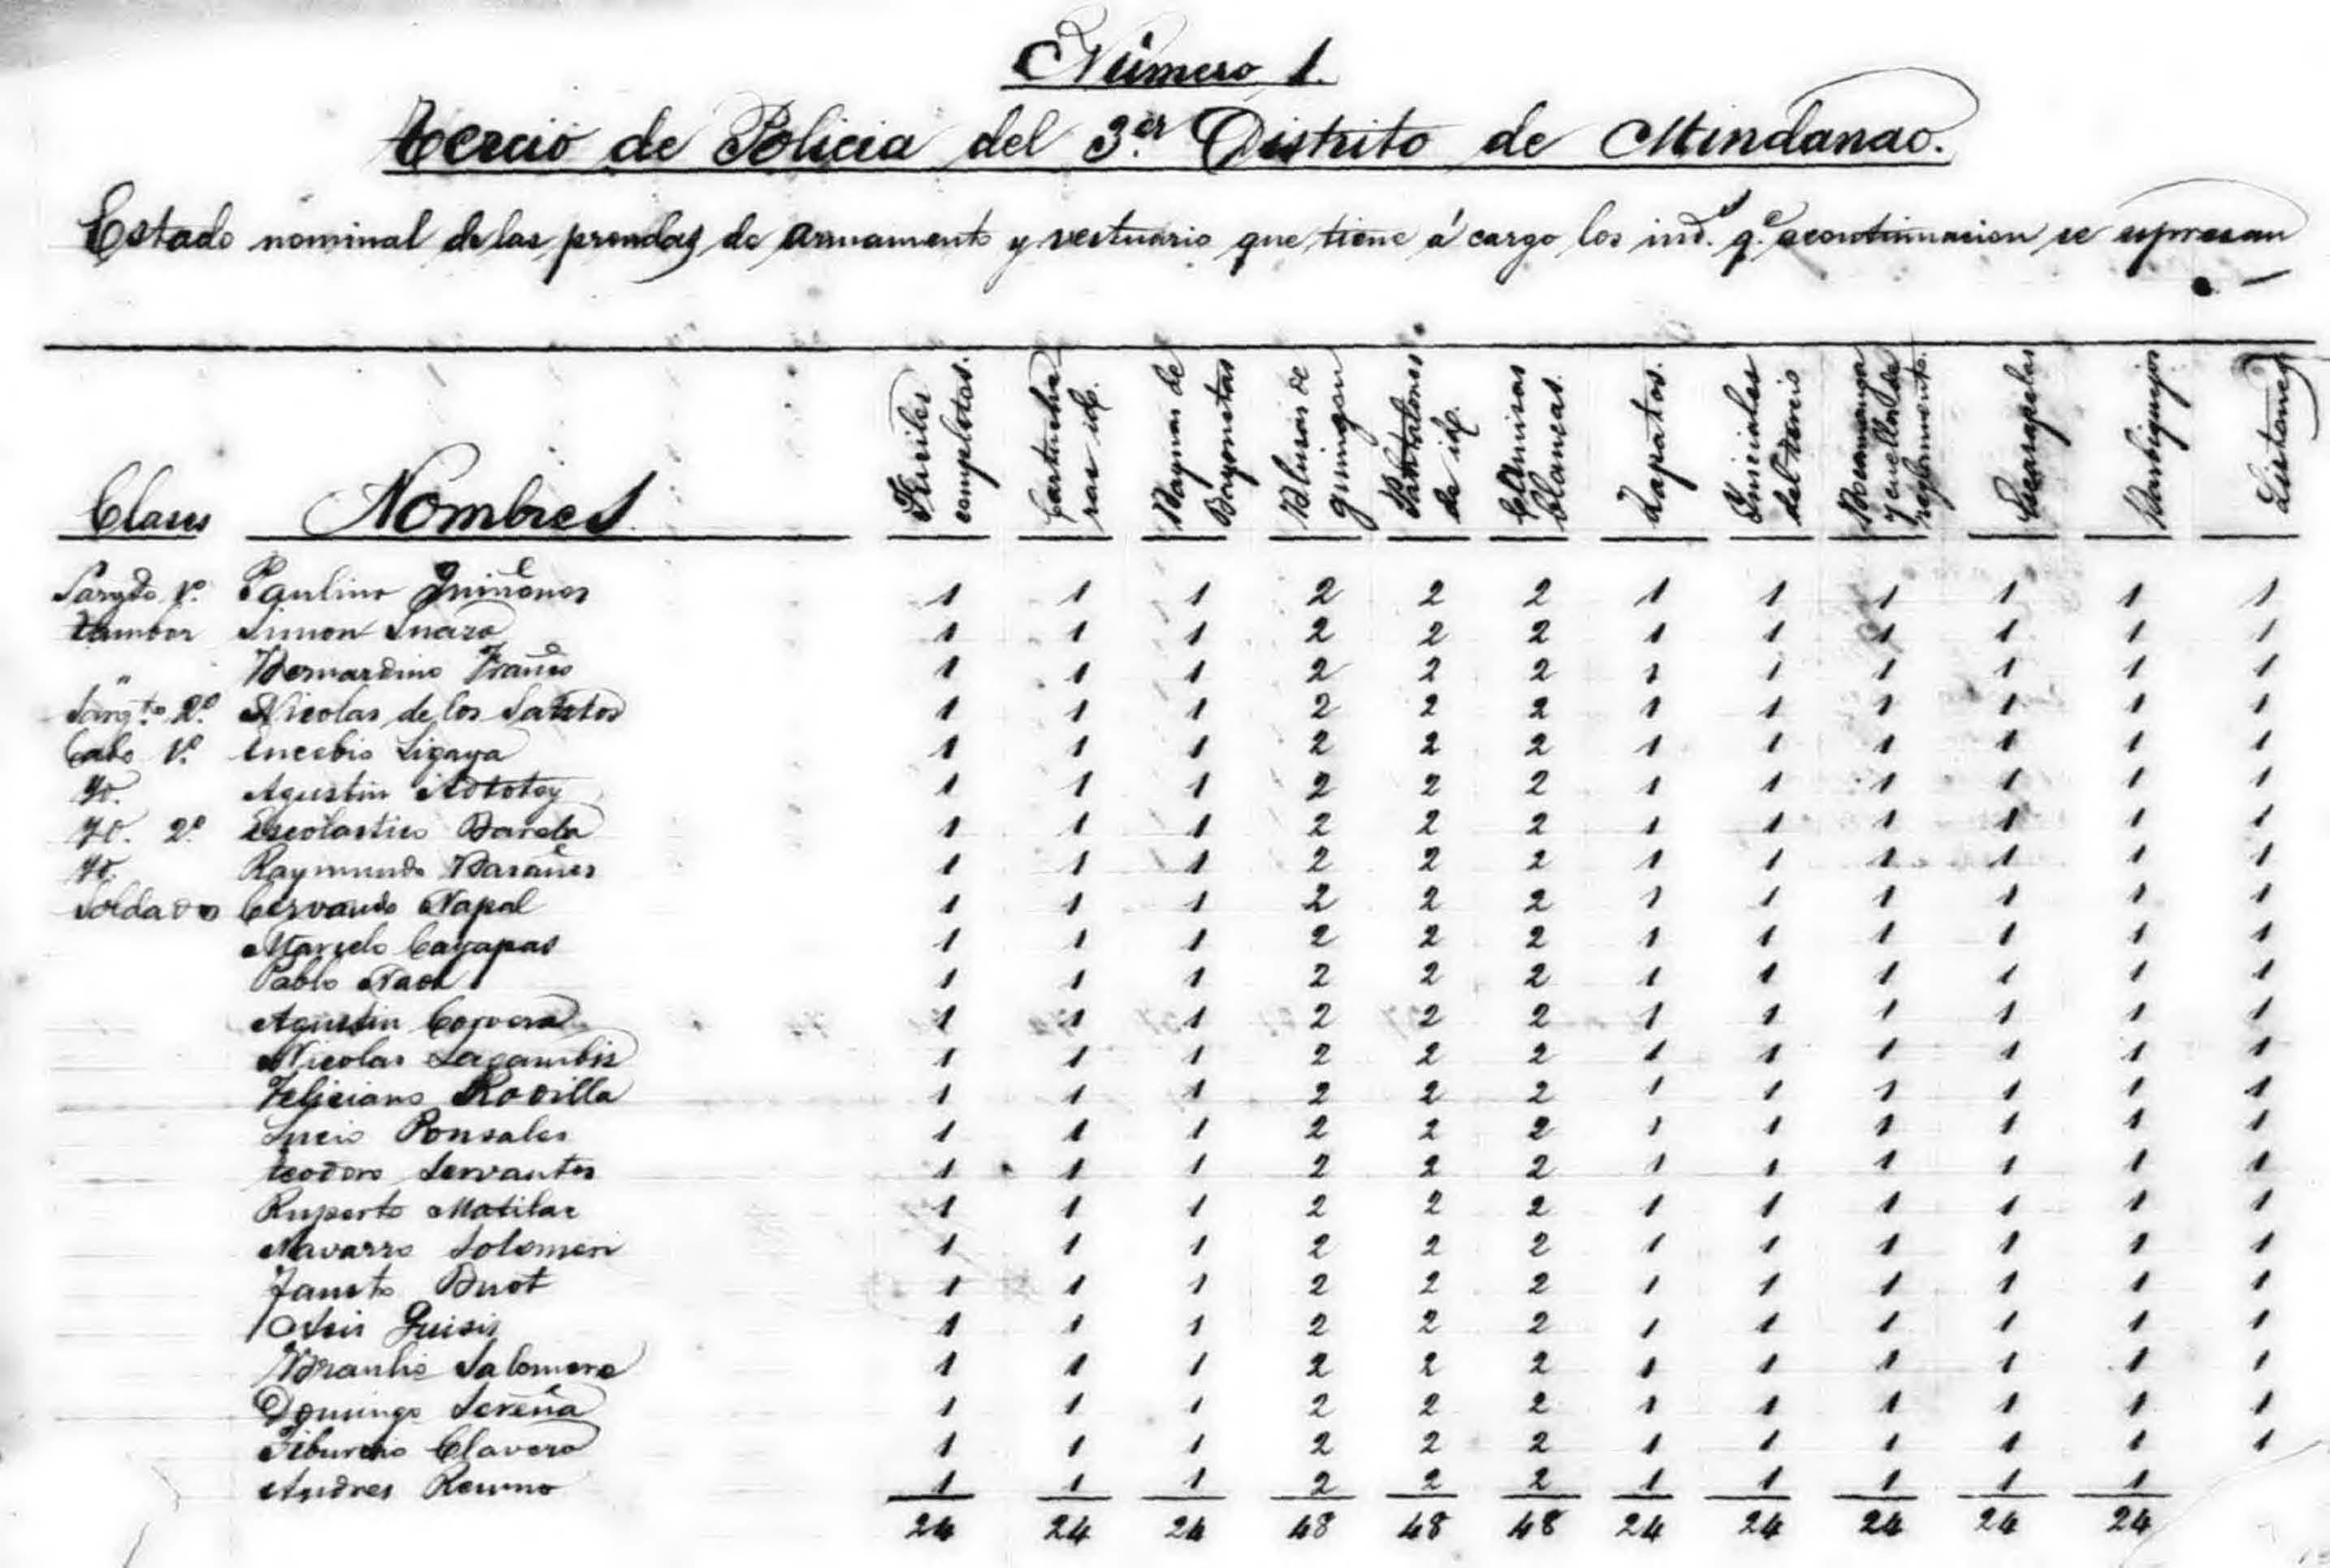 Número 1.
Tercio de Policia del 3.er Distrito de Mindanao.
Estado nominal de las prendas de armamento y vestuario que tiene á cargo los ind.s q.e acontinuacion se espresan
Clases Nombres Fusiles completos. Cartucheras id. Baynas de Bayonetas Blusas de guingon Pantalones de id. Camisas blancas. Zapatos. Iniciales del tercio Escarapelas Barbiquejos
Sargto 1.º Paulino Quiñones 1 1 1 2 2 2 1 1 1 1 1 1
Tambor Simon 1 1 1 2 2 2 1 1 1 1 1 1
" Bernardino 1 1 1 2 2 2 1 1 1 1 1 1
Sarg.to 2.º Nicolas de los Santos 1 1 1 2 2 2 1 1 1 1 1 1
Cabo 1.º Eucebio Ligaya 1 1 1 2 2 2 1 1 1 1 1 1
Yd. Agustin 1 1 1 2 2 2 1 1 1 1 1 1
Yd. 2.º Escolastico Barela 1 1 1 2 2 2 1 1 1 1 1 1
Yd. Raymundo 1 1 1 2 2 2 1 1 1 1 1 1
Soldados Cervando Napal 1 1 1 2 2 2 1 1 1 1 1 1
Marcelo Cagapas 1 1 1 2 2 2 1 1 1 1 1 1
Pablo 1 1 1 2 2 2 1 1 1 1 1 1
Agustin Corvera 1 1 1 2 2 2 1 1 1 1 1 1
Nicolas 1 1 1 2 2 2 1 1 1 1 1 1
Feliciano Rodilla 1 1 1 2 2 2 1 1 1 1 1 1
Lucio Ponsales 1 1 1 2 2 2 1 1 1 1 1 1
Teodoro Servantes 1 1 1 2 2 2 1 1 1 1 1 1
Ruperto Motilar 1 1 1 2 2 2 1 1 1 1 1 1
Navarro Solomeri 1 1 1 2 2 2 1 1 1 1 1 1
Fausto Buot 1 1 1 2 2 2 1 1 1 1 1 1
1 1 1 2 2 2 1 1 1 1 1 1
Braulio Salomera 1 1 1 2 2 2 1 1 1 1 1 1
Domingo Sereña 1 1 1 2 2 2 1 1 1 1 1 1
Tiburcio Clavero 1 1 1 2 2 2 1 1 1 1 1 1
Andres 1 1 1 2 2 2 1 1 1 1 1
24 24 24 48 48 48 24 24 24 24 24